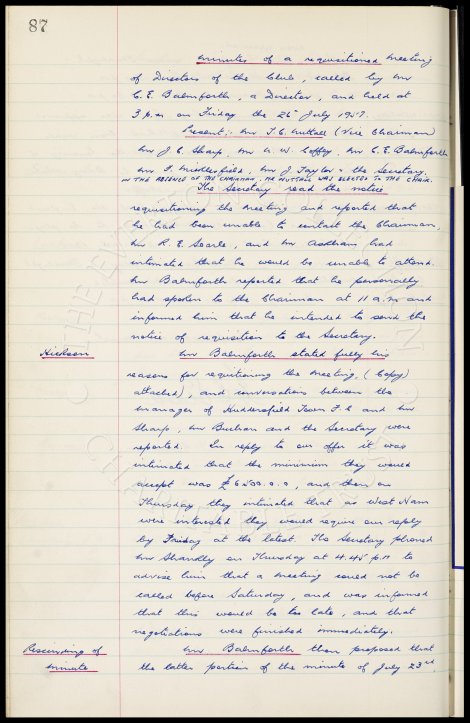 87
Minutes of a requisitioned meeting
of Directors of the Club, called by Mr
C. E. Balmforth, a Director, and held at
3 p.m on Friday the 26th July 1957.
Present:- Mr T. C. Nuttall (Vice Chairman)
Mr J. C. Sharp, Mr A. W. Coffey, Mr C. E. Balmforth
Mr F. Micklesfield, Mr J. Taylor & the Secretary.
IN THE ABSENCE OF THE CHAIRMAN, MR NUTTALL WAS ELECTED TO THE CHAIR.
The Secretary read the notice
requisitioning the meeting and reported that
he had been unable to contact the Chairman,
Mr R. E. Searle, and Mr Askham had
intimated that he would be unable to attend.
Mr Balmforth reported that he personally
had spoken to the Chairman at 11 a.m and
informed him that he intended to send the
notice of requisition to the Secretary.
Hickson
Mr Balmforth stated fully his
reasons for requitioning the meeting, (Copy
attached), and conversations between the
Manager of Huddersfield Town F.C and Mr
Sharp, Mr Burhan and the Secretary were
reported. In reply to our offer it was
intimated that the minimum they would
accept was £6500.0.0, and then on
Thursday they intimated that as West Ham
were interested they would require our reply
by Friday at the latest. The Secretary phoned
Mr Shankly on Thursday at 4.45 p.m to
advise him that a meeting could not be
called before Saturday, and was informed
that this would be too late, and that
negotiations were finished immediately.
Rescinding of
Minute
Mr Balmforth then proposed that
the latter portion of the minute of July 23rd